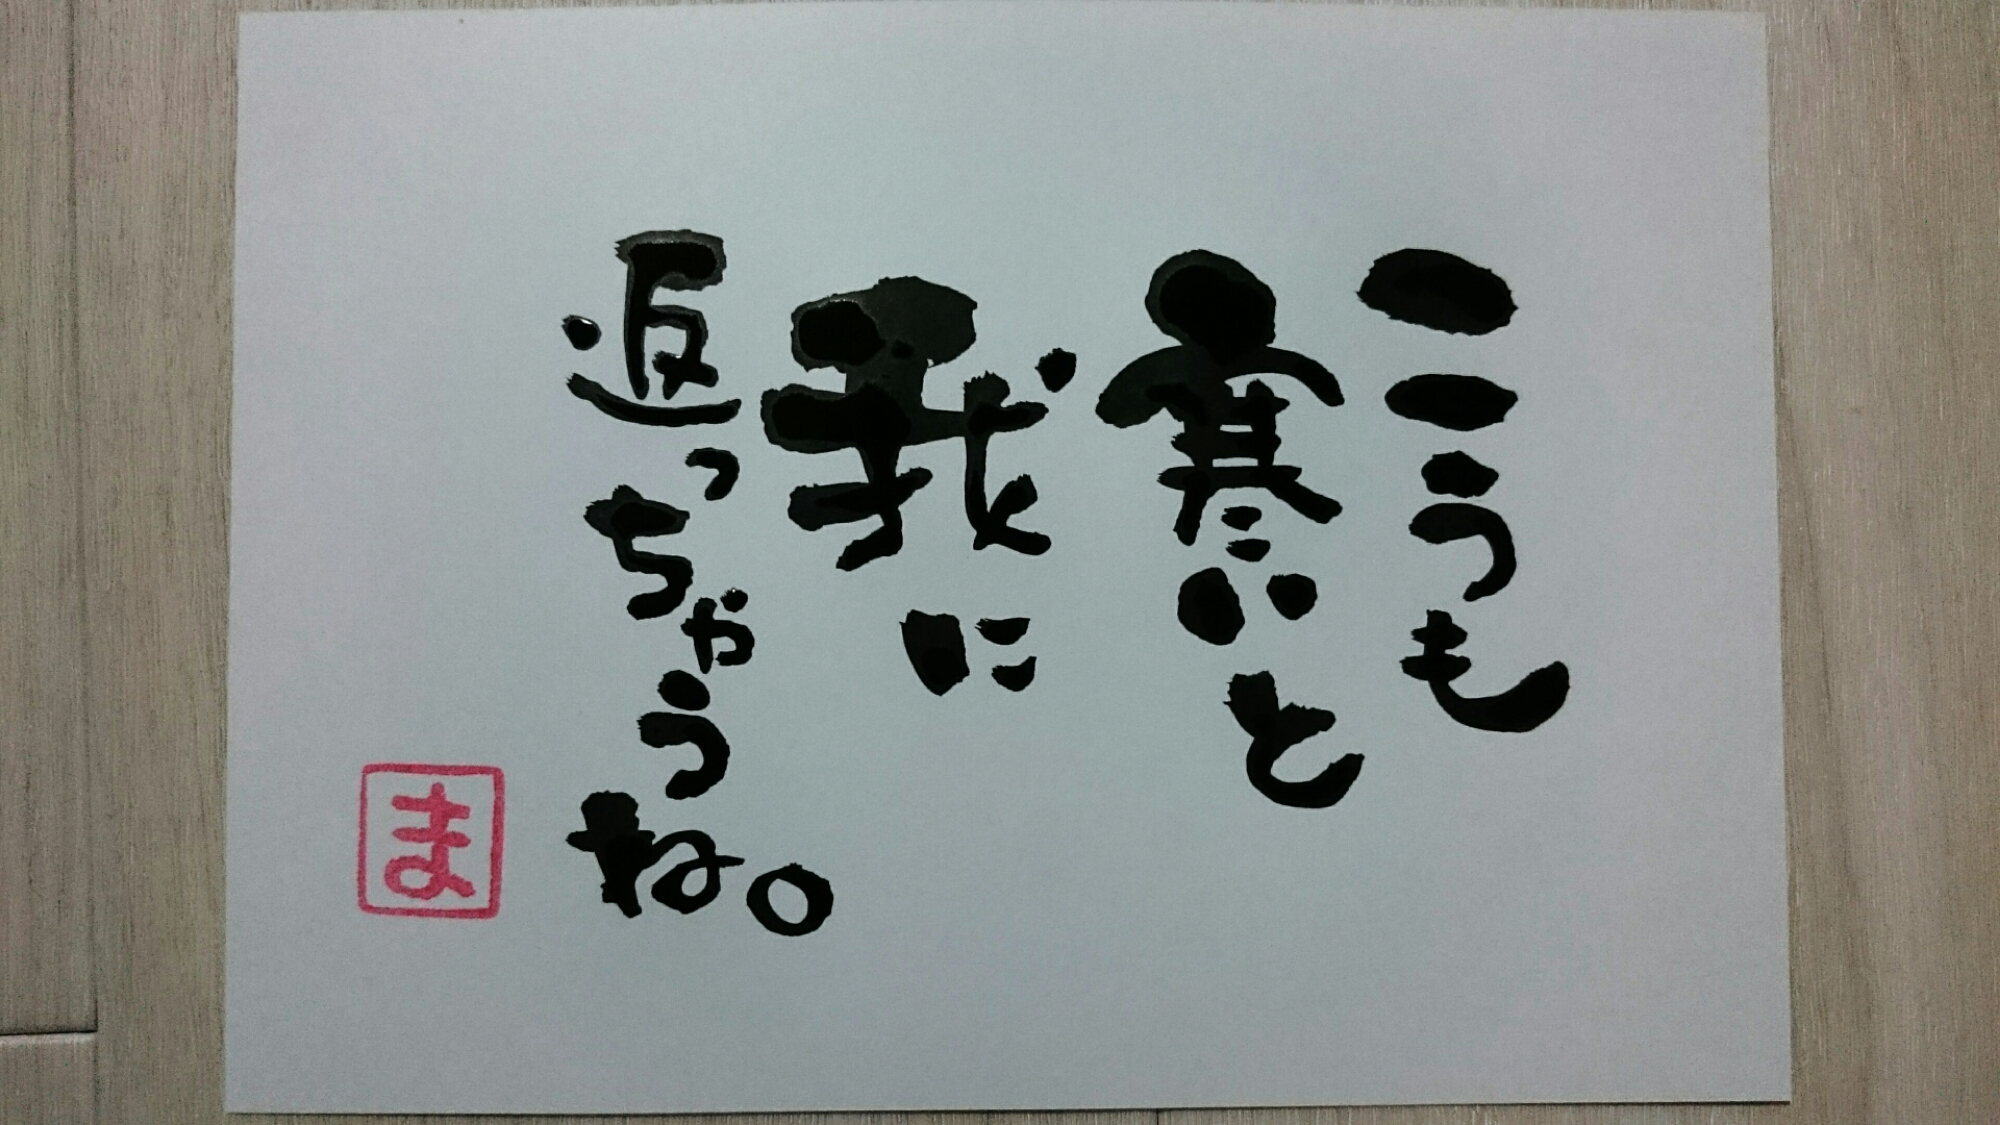 こうも
寒いと
我に
返っちゃうね。
ま